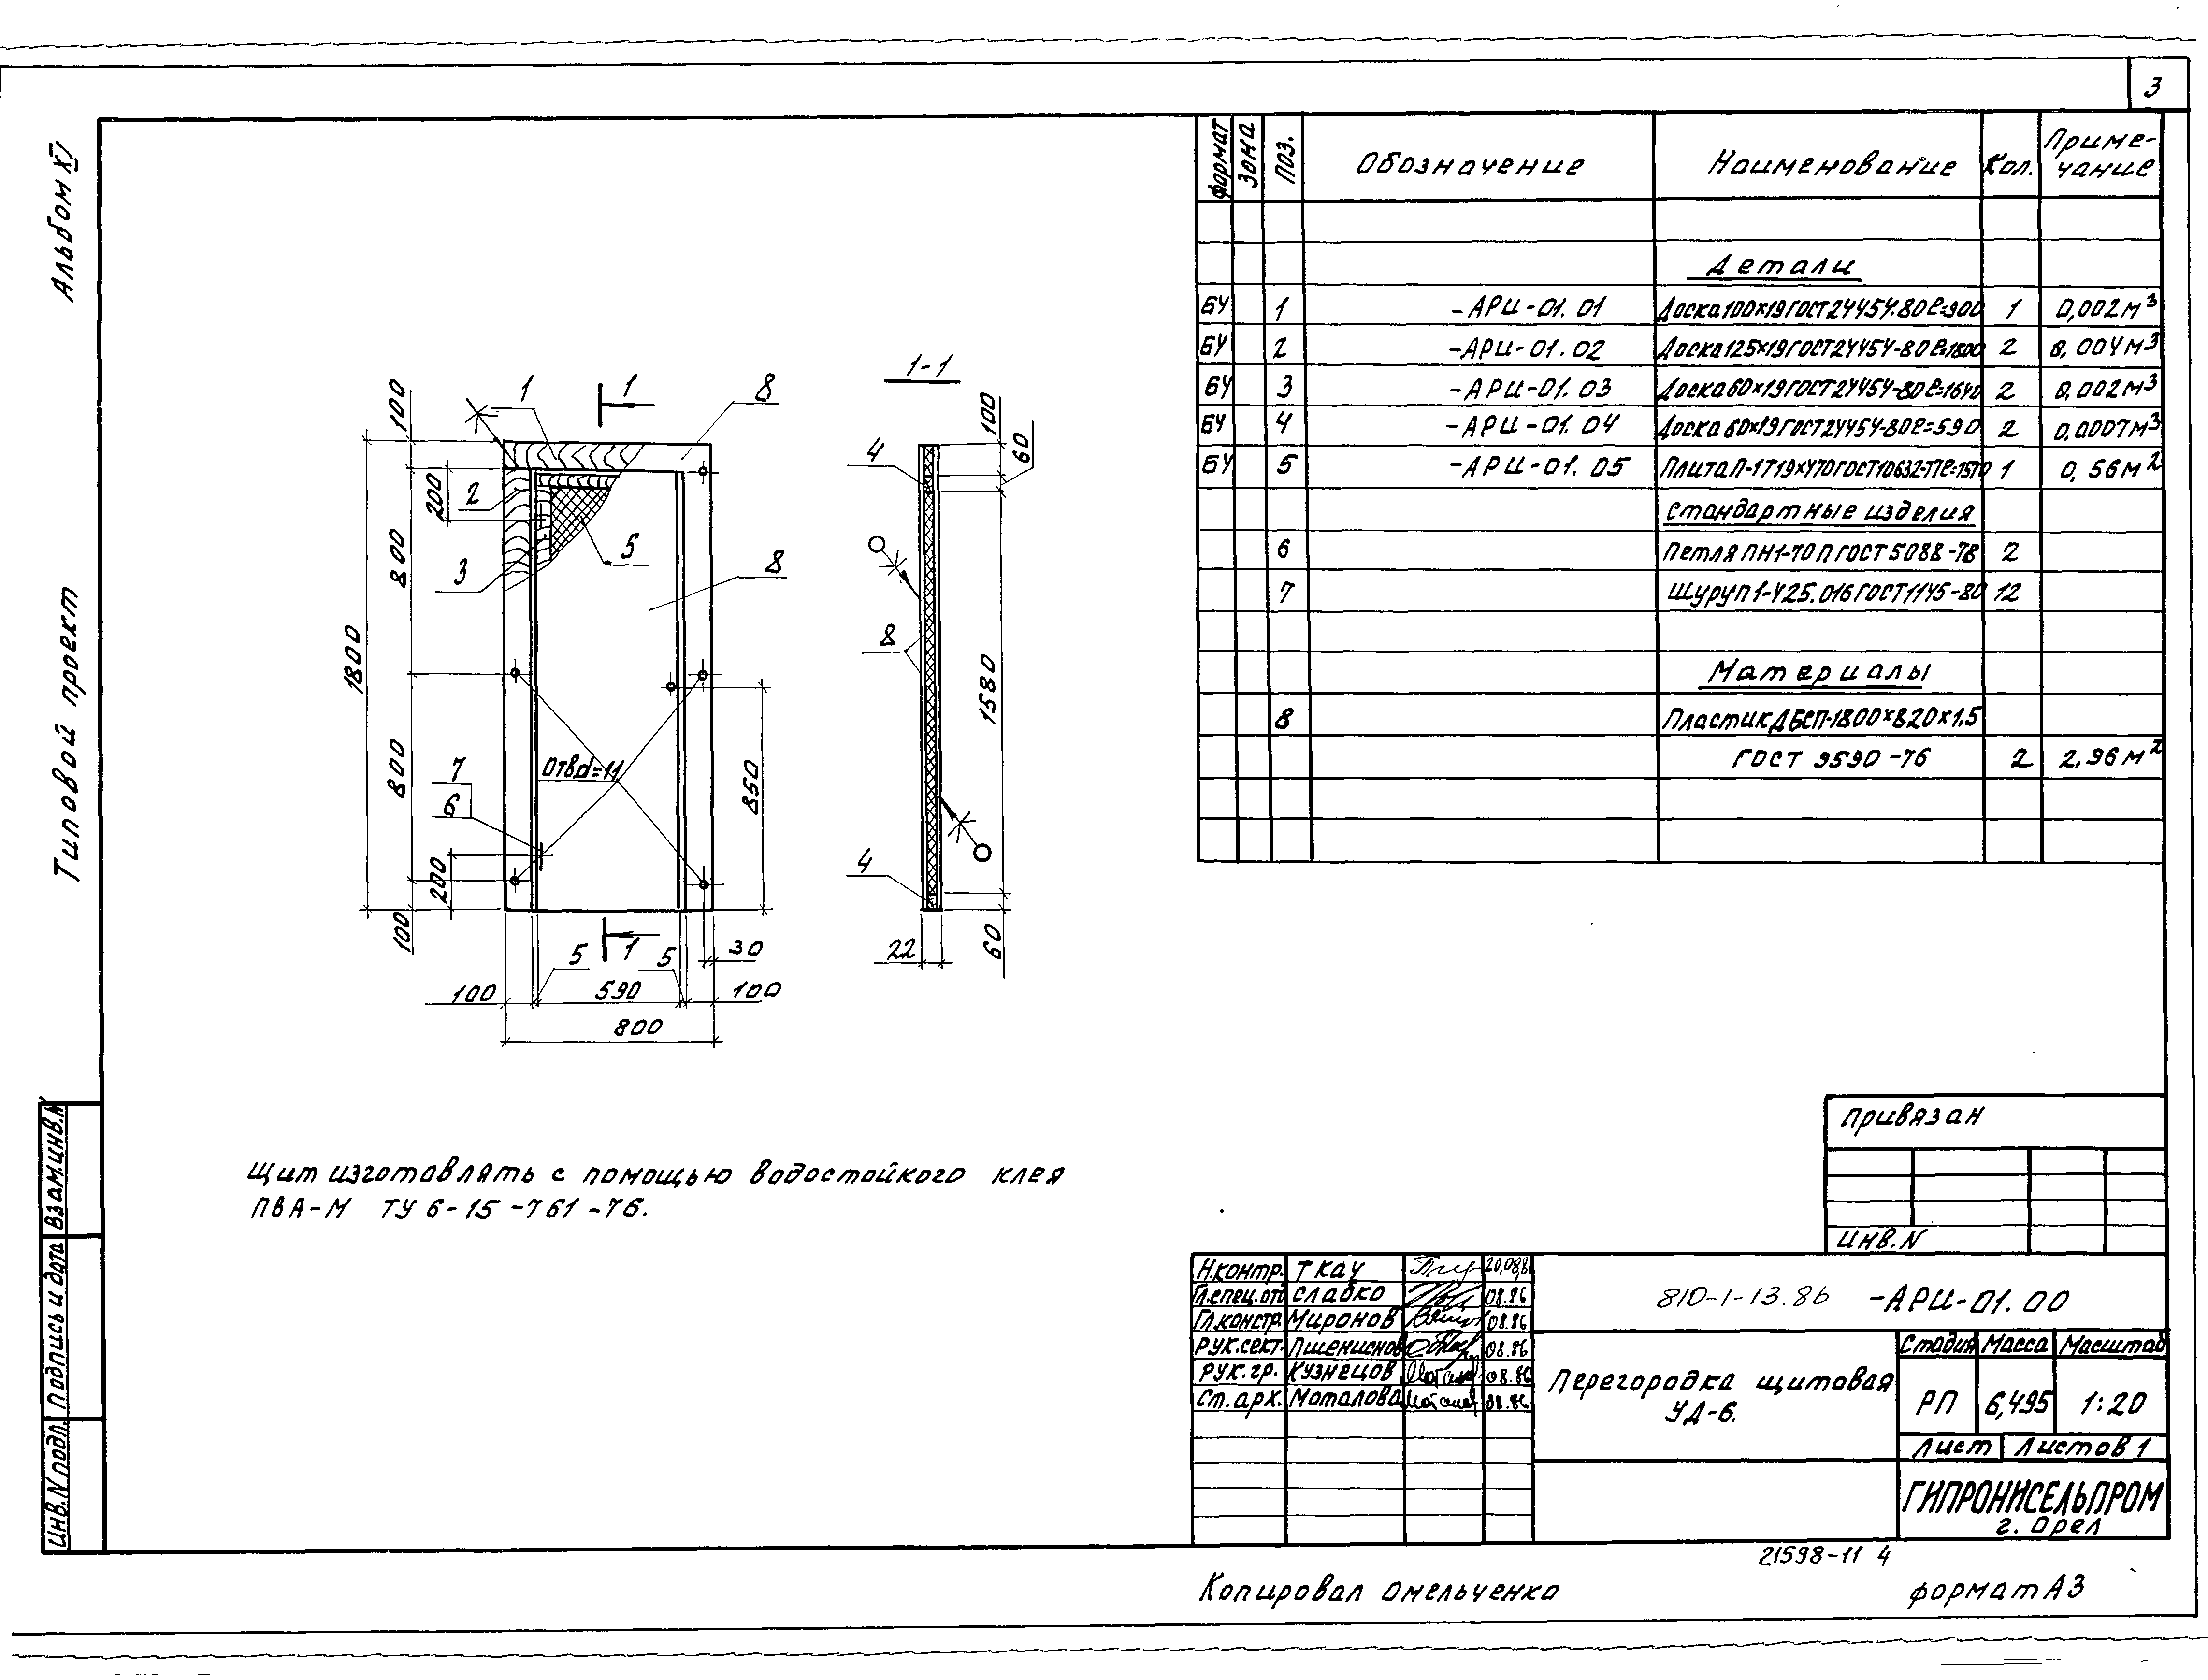 3
Альбом XI
Типовой проект
Взам.инв.N
Подпись и дата
Инв.N подл.
формат Зона Поз. Обозначение Наименование Кол. Приме-
чание
Детали
БЧ 1 -АРИ-01.01 Доска 100×19 ГОСТ 24454-80 ℓ=900 1 0,002 м³
БЧ 2 -АРИ-01.02 Доска 125×19 ГОСТ 24454-80 ℓ=1800 2 0,004 м³
БЧ 3 -АРИ-01.03 Доска 60×19 ГОСТ 24454-80 ℓ=1640 2 0,002 м³
БЧ 4 -АРИ-01.04 Доска 60×19 ГОСТ 24454-80 ℓ=590 2 0,0007 м³
БЧ 5 -АРИ-01.05 Плита П-1Т 19×470 ГОСТ 10632-77 ℓ=1570 1 0,56 м²
Стандартные изделия
6 Петля ПН1-70 П ГОСТ 5088-78 2
7 Шуруп 1-425.016 ГОСТ 1145-80 12
Материалы
8 Пластик ДБСП-1800×820×1.5
ГОСТ 9590-76 2 2,96 м²
1 1 8 1-1
100 100 60
4
200 2
5
3 8
800
8
1800 1580
800
7 Отв.d=11
6 850
4
200
100
1 30
5 5 22 60
100 590 100
800
Щит изготовлять с помощью водостойкого клея
ПВА-М ТУ 6-15-761-76.
Привязан
Инв.N
Н.контр. Ткач 20.08.86
Гл.спец.отд Сладко 08.86
Гл.констр. Миронов 08.86
Рук.сект. Пшениснов 08.86
Рук.гр. Кузнецов 08.86
Ст.арх. Моталова 08.86
810-1-13.86 -АРИ-01.00
Перегородка щитовая
УД-6.
Стадия Масса Масштаб
РП 6,495 1:20
Лист Листов 1
ГИПРОНИСЕЛЬПРОМ
г. Орел
21598-11 4
Копировал Омельченко формат А3